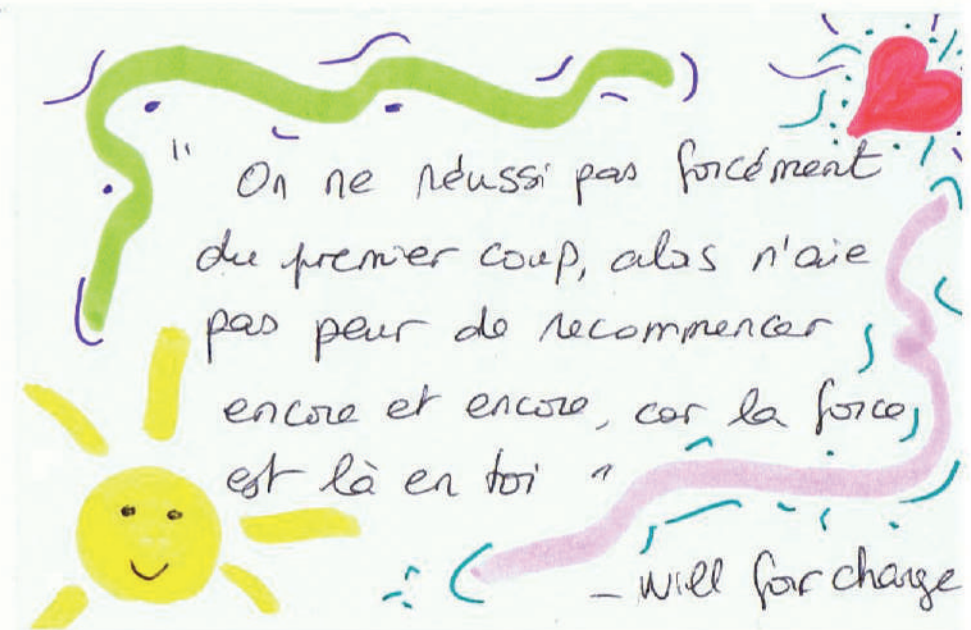 " On ne réussi pas forcément
du premier coup, alors n'aie
pas peur de recommencer
encore et encore, car la force,
est là en toi "
- will for change